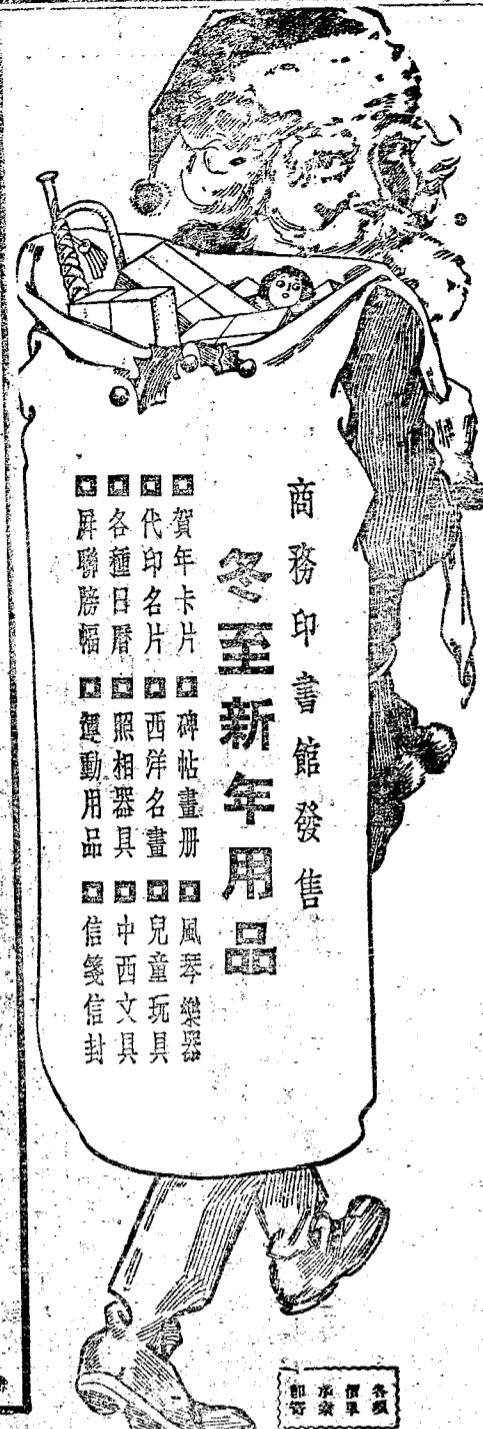 商務印書館發售
冬至新年用品
賀年卡片 碑帖畫册 風琴樂器
代印名片 西洋名畫 兒童玩具
各種日曆 照相器具 中西文具
屏聯膀幅 運動用品 信箋信封
各種
價單
承索
即寄